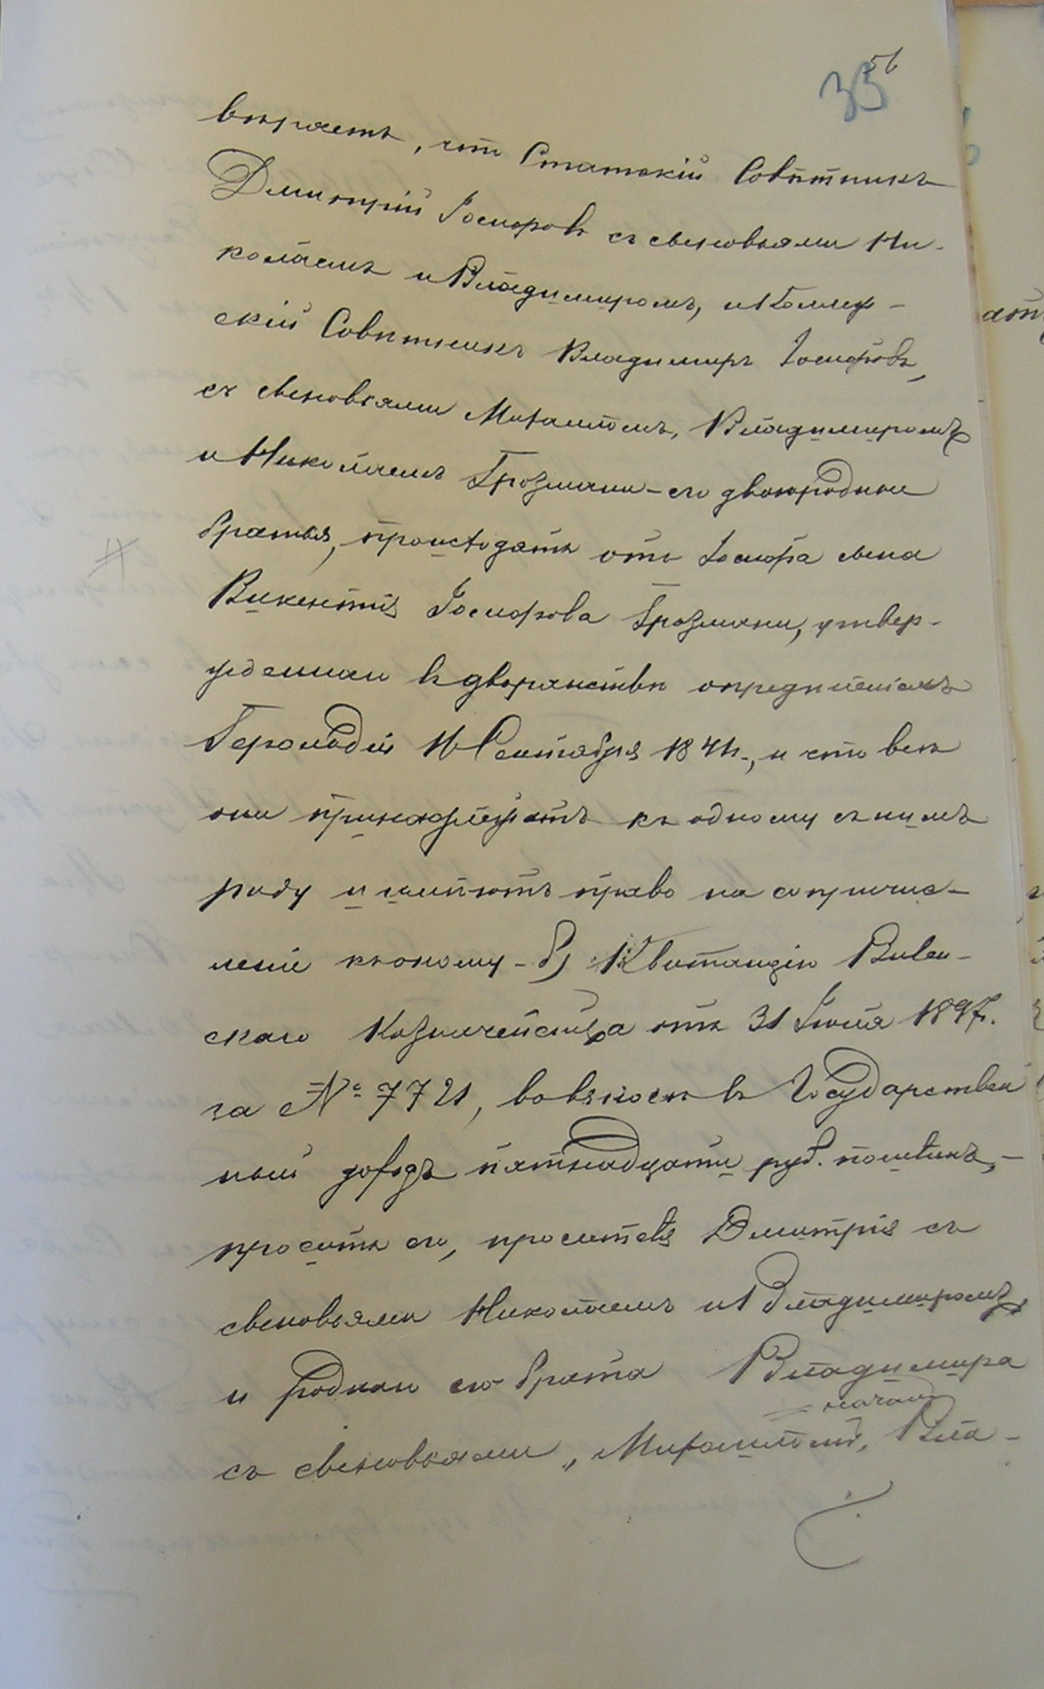 35
56
вѣряетъ, что Статскій Совѣтникъ
Дмитрій Іосифовъ съ сыновьями Ни-
колаемъ и Владиміромъ, и Коллеж-
скій Совѣтникъ Владиміръ Іосифовъ,
съ сыновьями Михаиломъ, Владиміромъ
и Николаемъ Грозмани - его двоюродные
братья, происходятъ отъ Іосифа сына
Викентія Іосифова Грозмани, утвер-
жденнаго въ дворянствѣ опредѣленіемъ
Герольдіи 16 Сентября 1841 г., и что всѣ
они принадлежатъ къ одному съ нимъ
роду и имѣютъ право на сопричис-
леніе къ оному - б) Квитанцію Вилен-
скаго Казначейства отъ 31 Іюля 1897 г.
за № 7721, во взносѣ въ Государствен
ный доходъ пятнадцати руб. пошлинъ, -
проситъ его, просителя Дмитрія съ
сыновьями Николаемъ и Владиміромъ,
и роднаго его брата Владиміра
съ сыновьями, Михаиломъ, Вла-
ат